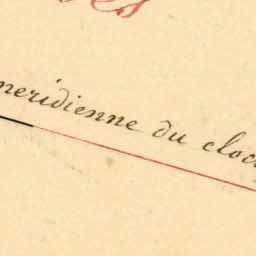 meridienne du cloc